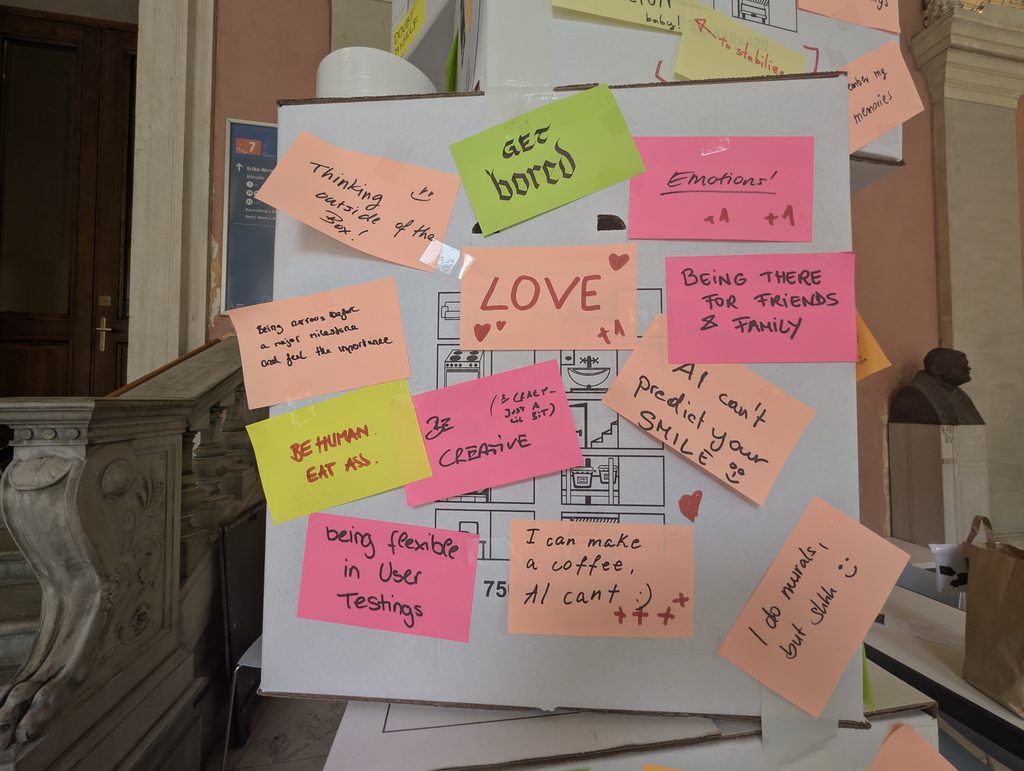 DOUBT
MYSELF
baby!
to stabilize
my
memories
7
GET
bored
Thinking
outside of the
Box!
Emotions!
+1 +1
LOVE
+1
BEING THERE
FOR FRIENDS
& FAMILY
Being nervous before
a major milestone
and feel the importance
AI can't
predict your
SMILE
BE
(& CRAZY...
JUST A
LIL BIT)
CREATIVE
BE HUMAN.
EAT ASS.
being flexible
in User
Testings
I can make
a coffee,
AI cant :)
++++
750
I do murals,
but shhh